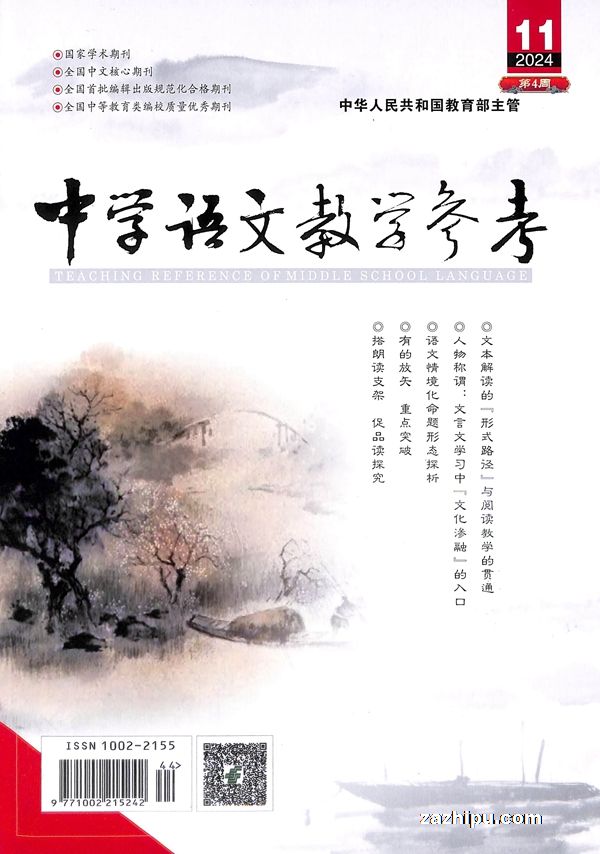 11
2024
第4周
◉国家学术期刊
◉全国中文核心期刊
◉全国首批编辑出版规范化合格期刊
◉全国中等教育类编校质量优秀期刊
中华人民共和国教育部主管
中学语文教学参考
TEACHING REFERENCE OF MIDDLE SCHOOL LANGUAGE
◎文本解读的『形式路径』与阅读教学的贯通
◎人物称谓：文言文学习中『文化渗融』的入口
◎语文情境化命题形态探析
◎有的放矢 重点突破
◎搭朗读支架 促品读探究
ISSN 1002-2155
44>
9 771002 215242
zazhipu.com